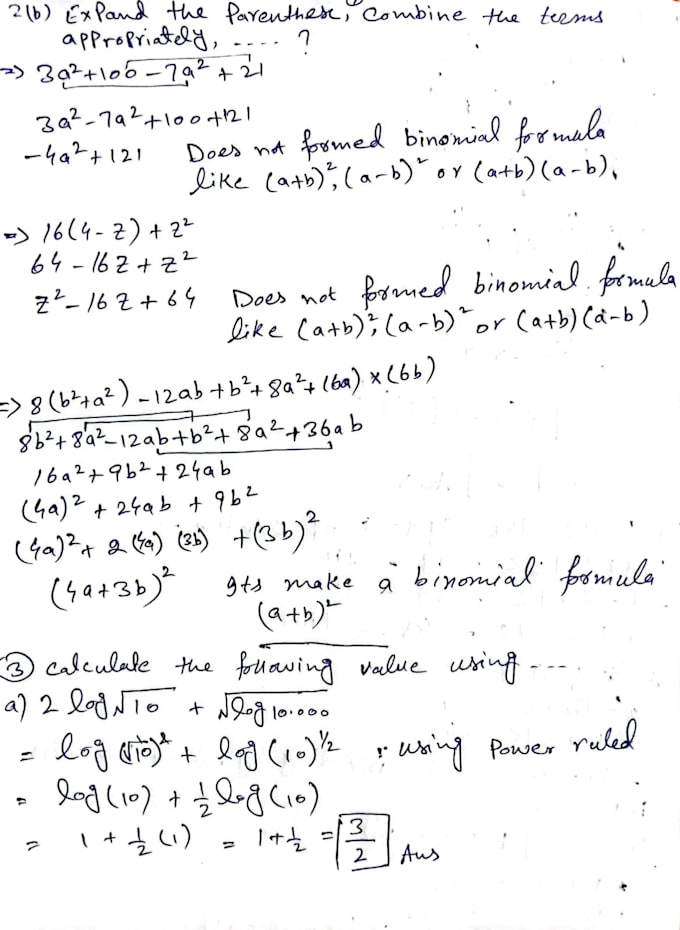 2(b) Expand the Parenthese, Combine the terms
appropriately, .... ?
=> 3a²+100 - 7a² + 21
3a²-7a²+100+121
-4a²+121 Does not formed binomial formula
like (a+b)², (a-b)² or (a+b)(a-b),
=> 16(4-z) + z²
64 - 16z + z²
z² - 16z + 64 Does not formed binomial formula
like (a+b)², (a-b)² or (a+b)(a-b)
=> 8(b²+a²) - 12ab + b² + 8a² + (6a) × (6b)
8b²+8a²-12ab+b²+8a²+36ab
16a²+9b²+24ab
(4a)² + 24ab + 9b²
(4a)² + 2(4a) (3b) + (3b)²
(4a+3b)² Its make a binomial formula
(a+b)²
③ calculate the following value using ---
a) 2 log√10 + √log 10.000
= log (√10)² + log (10)^1/2 ∵ using Power ruled
= log(10) + 1/2 log(10)
= 1 + 1/2 (1) = 1+1/2 = 3/2 Ans